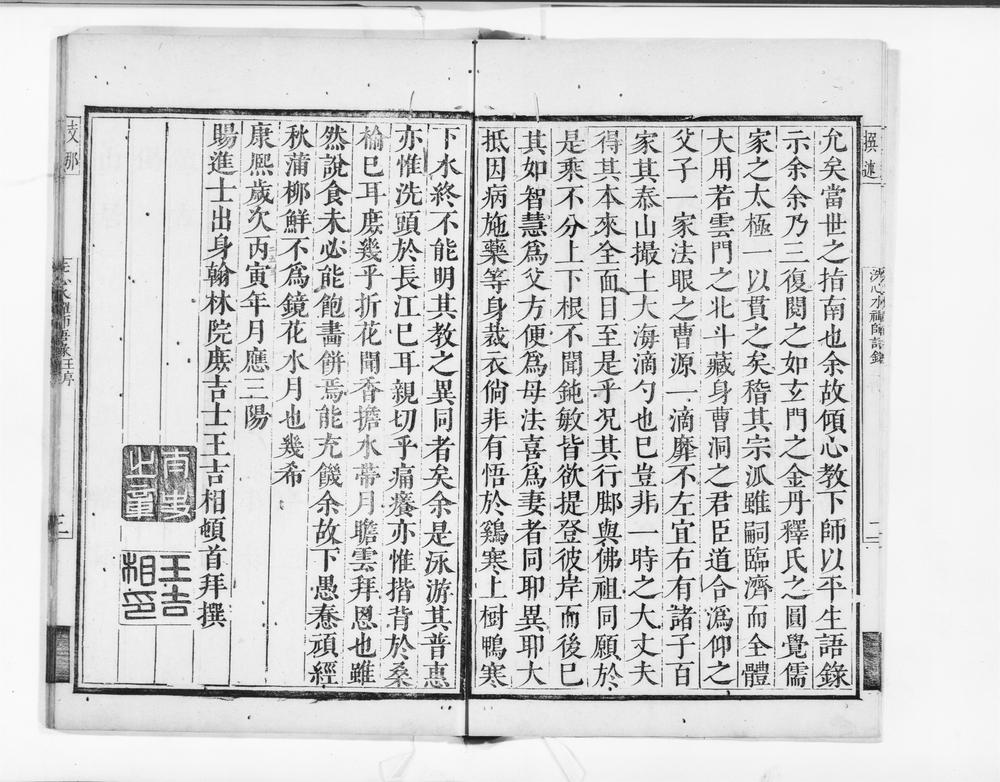 允矣當世之指南也余故傾心教下師以平生語錄
示余余乃三復閱之如玄門之金丹釋氏之圓覺儒
家之太極一以貫之矣稽其宗派雖嗣臨濟而全體
大用若雲門之北斗藏身曹洞之君臣道合溈仰之
父子一家法眼之曹源一滴靡不左宜右有諸子百
家其泰山撮土大海滴勺也已豈非一時之大丈夫
得其本來全面目至是乎况其行脚與佛祖同願於
是乘不分上下根不聞鈍敏皆欲提登彼岸而後已
其如智慧爲父方便爲母法喜爲妻者同耶異耶大
抵因病施藥等身裁衣倘非有悟於鷄寒上樹鴨寒
下水終不能明其教之異同者矣余是泳游其普惠
亦惟洗頭於長江已耳親切乎痛癢亦惟揩背於桑
榆已耳庶幾乎折花聞香擔水帶月瞻雲拜恩也雖
然說食未必能飽畵餅焉能充饑余故下愚惷頑經
秋蒲柳鮮不爲鏡花水月也幾希
康熙歲次丙寅年月應三陽
賜進士出身翰林院庶吉士王吉相頓首拜撰
王吉
相印
撰述
支那